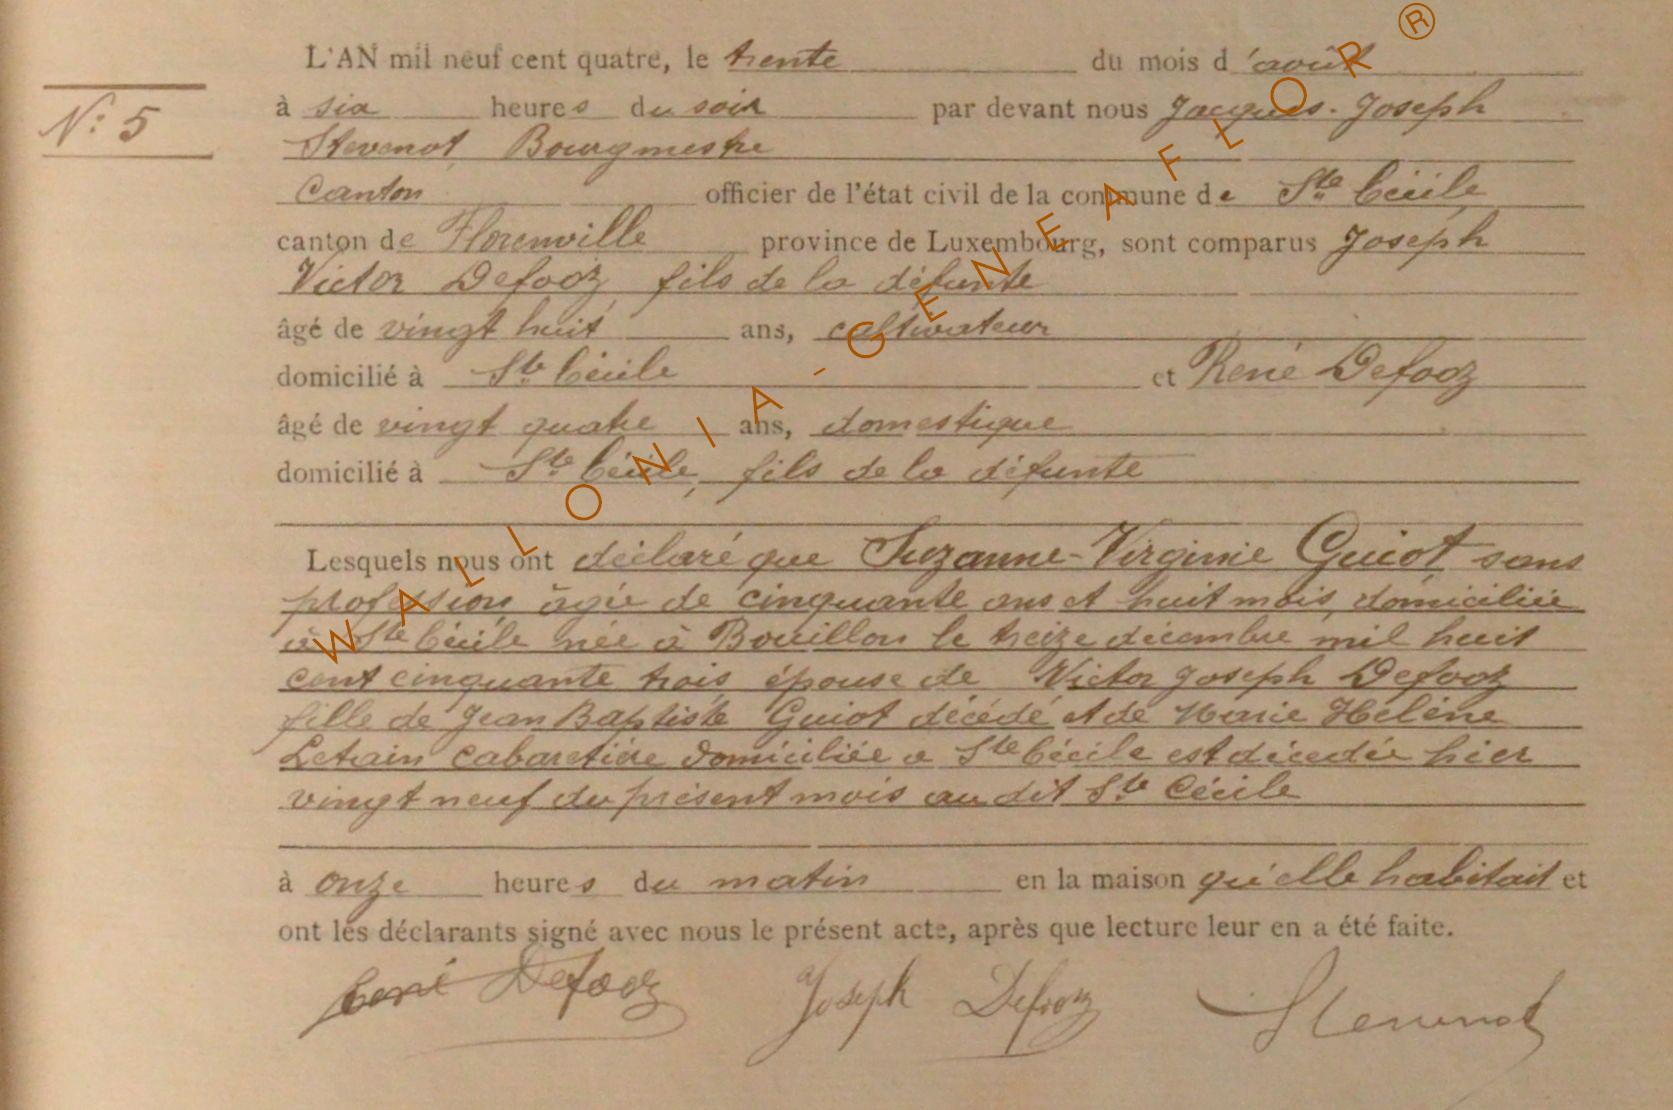 L'AN mil neuf cent quatre, le trente du mois d'août
N° 5
à six heures du soir par devant nous Jacques-Joseph
Stevenot Bourgmestre
Canton officier de l'état civil de la commune de Ste Cécile
canton de Florenville province de Luxembourg, sont comparus Joseph
Victor Defooz fils de la défunte
âgé de vingt huit ans, cultivateur
domicilié à Ste Cécile et René Defooz
âgé de vingt quatre ans, domestique
domicilié à Ste Cécile, fils de la défunte
Lesquels nous ont déclaré que Suzanne-Virginie Guiot sans
profession âgée de cinquante ans et huit mois, domiciliée
à Ste Cécile née à Bouillon le treize décembre mil huit
cent cinquante trois épouse de Victor Joseph Defooz
fille de Jean Baptiste Guiot décédé et de Marie Hélène
Letain Cabaretière domiciliée a Ste Cécile est décédée hier
vingt neuf du présent mois au dit Ste Cécile
à onze heures du matin en la maison qu'elle habitait et
ont les déclarants signé avec nous le présent acte, après que lecture leur en a été faite.
René Defooz Joseph Defooz Stevenot
WALLONIA-GENEAFLOR®